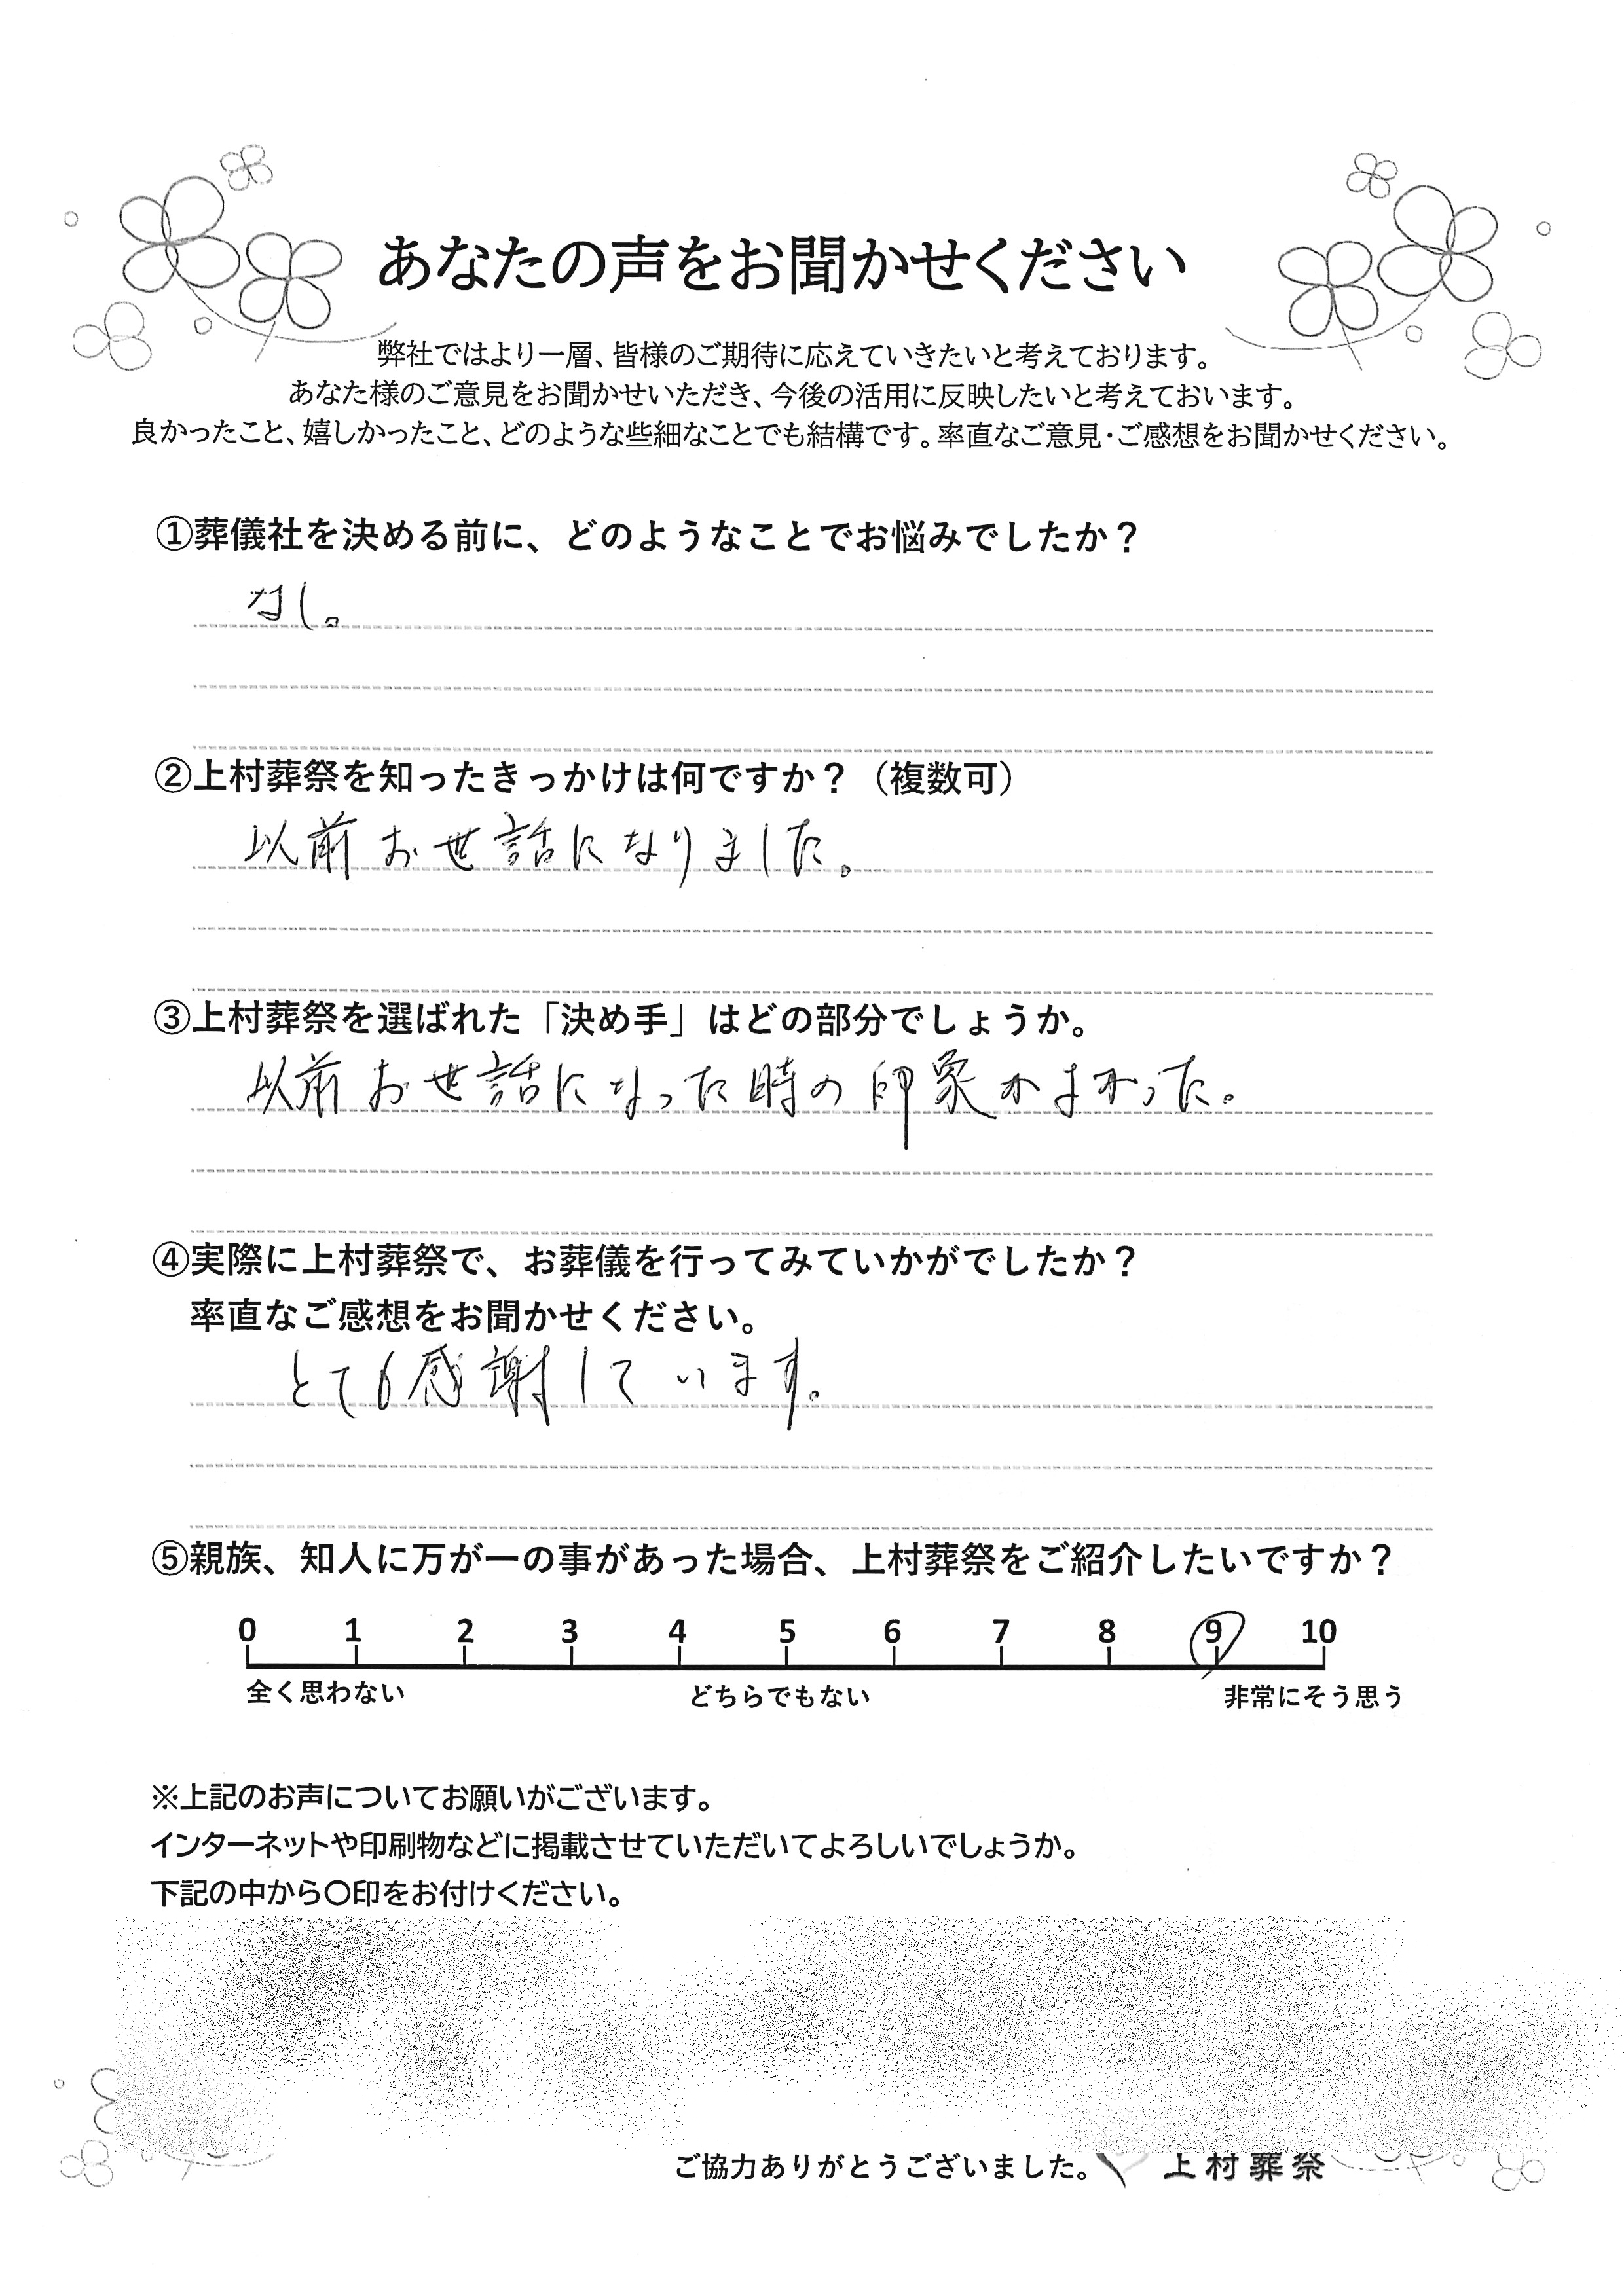 あなたの声をお聞かせください
弊社ではより一層、皆様のご期待に応えていきたいと考えております。
あなた様のご意見をお聞かせいただき、今後の活用に反映したいと考えておいます。
良かったこと、嬉しかったこと、どのような些細なことでも結構です。率直なご意見・ご感想をお聞かせください。
①葬儀社を決める前に、どのようなことでお悩みでしたか？
なし。
②上村葬祭を知ったきっかけは何ですか？（複数可）
以前お世話になりました。
③上村葬祭を選ばれた「決め手」はどの部分でしょうか。
以前お世話になった時の印象がよかった。
④実際に上村葬祭で、お葬儀を行ってみていかがでしたか？
率直なご感想をお聞かせください。
とても感謝しています。
⑤親族、知人に万が一の事があった場合、上村葬祭をご紹介したいですか？
0 1 2 3 4 5 6 7 8 9 10
全く思わない どちらでもない 非常にそう思う
※上記のお声についてお願いがございます。
インターネットや印刷物などに掲載させていただいてよろしいでしょうか。
下記の中から〇印をお付けください。
ご協力ありがとうございました。 上村葬祭